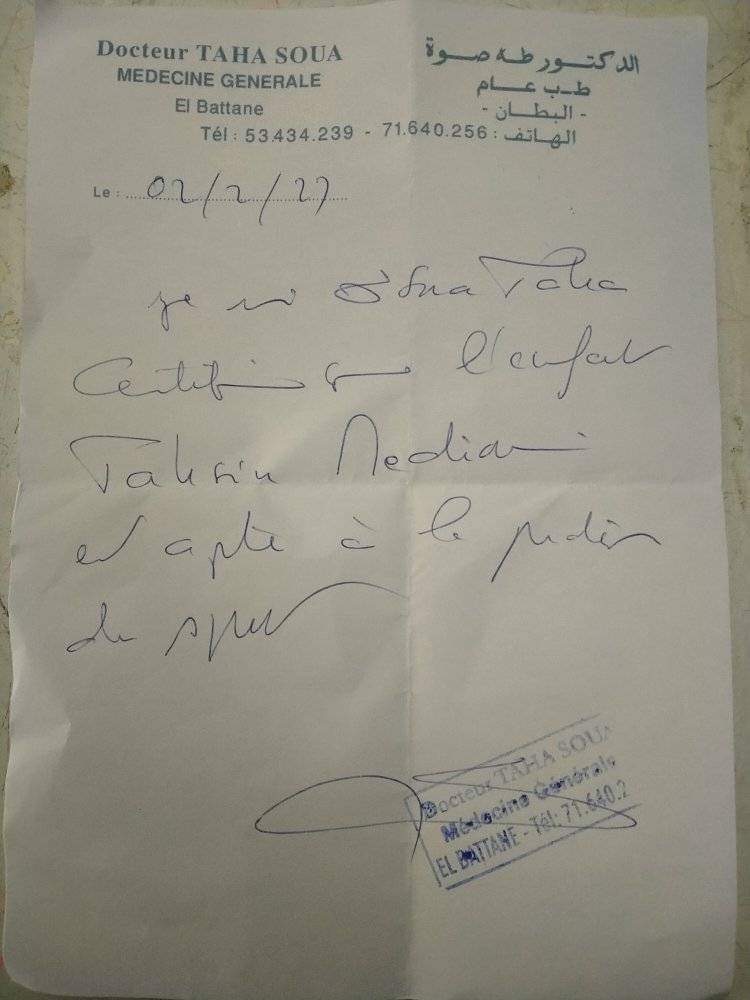 Docteur TAHA SOUA
MEDECINE GENERALE
El Battane
Tél : 53.434.239 - 71.640.256 : الهاتف
الدكتور طه صوة
طب عام
- البطان -
Le : 02/2/27
je Dr Soua Taha
Certifie que l'enfant
Tahsin
est apte à la
du sport
Docteur TAHA SOUA
Médecine Générale
EL BATTANE - Tél: 71.640.2